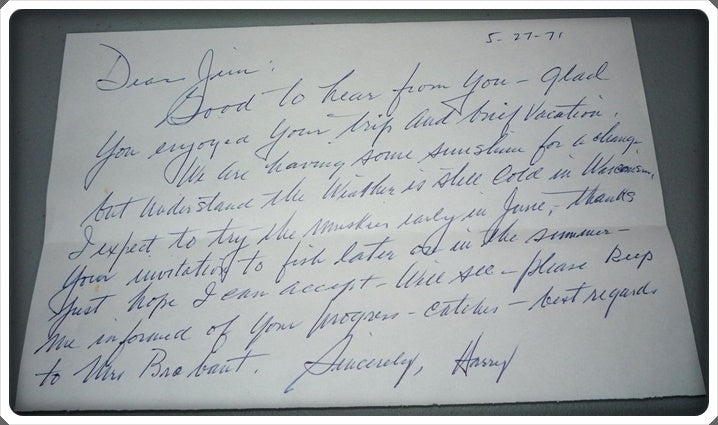 5-27-71
Dear Jim:
Good to hear from you - glad
you enjoyed your trip and brief vacation.
We are having some sunshine for a change
but understand the weather is still cold in Wisconsin,
I expect to try the muskies early in June, - thanks
your invitation to fish later on in the summer -
Just hope I can accept - will see - please keep
me informed of your progress - catches - best regards
to Mrs Brabant.
Sincerely, Harry